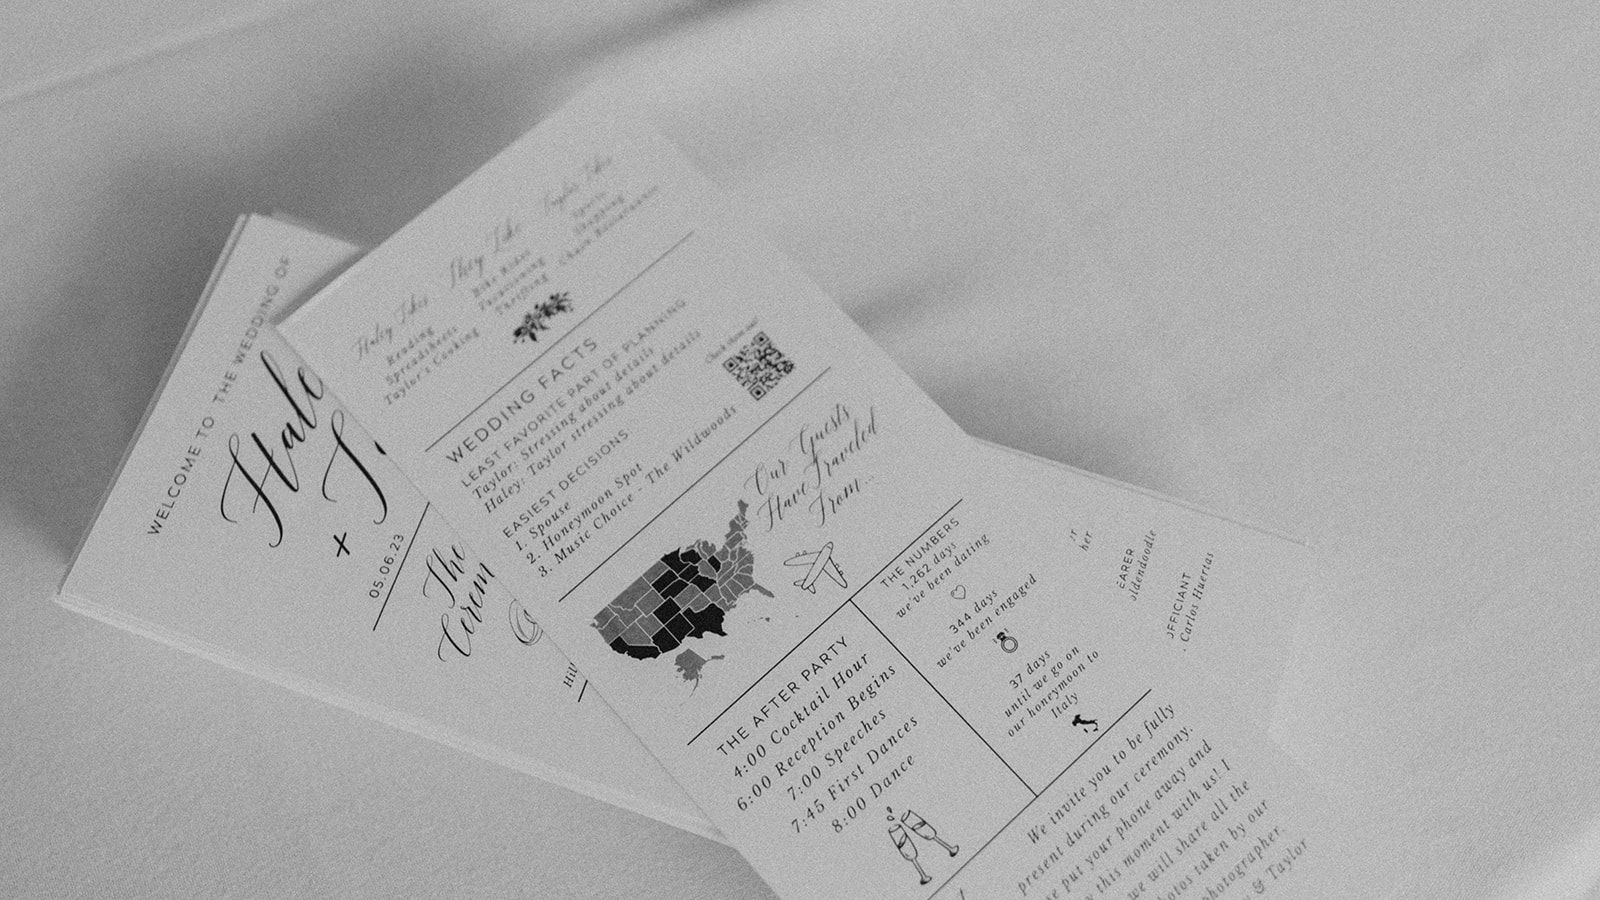 WELCOME TO THE WEDDING OF
Hale
+
05.06.23
The
Cerem
Hill
Haley Likes
Reading
Spreadsheets
Taylor's Cooking
They Like
Bike Rides
Thrifting
Taylor Likes
Sports
WEDDING FACTS
LEAST FAVORITE PART OF PLANNING
Taylor: Stressing about details
Haley: Taylor stressing about details
EASIEST DECISIONS
1. Spouse
2. Honeymoon Spot
3. Music Choice - The Wildwoods
Our Guests
Have Traveled
From...
THE AFTER PARTY
4:00 Cocktail Hour
6:00 Reception Begins
7:00 Speeches
7:45 First Dances
8:00 Dance
THE NUMBERS
1,262 days
we've been dating
344 days
we've been engaged
37 days
until we go on
our honeymoon to
Italy
We invite you to be fully
present during our ceremony.
put your phone away and
this moment with us! I
we will share all the
hotos taken by our
hotographer.
& Taylor
her
EARER
oldendoodle
OFFICIANT
Carlos Huertas